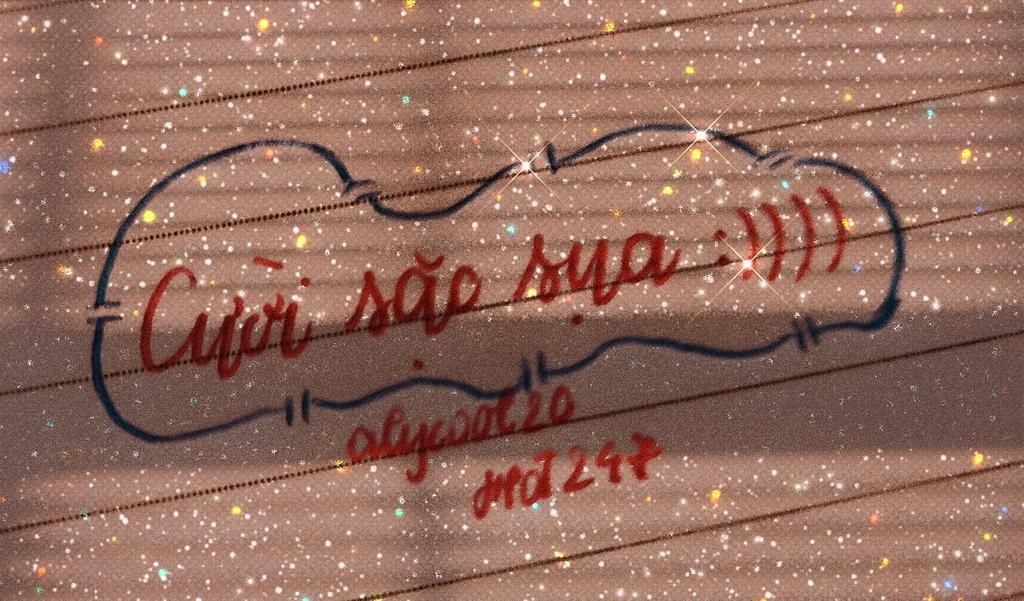 Cười sặc sụa :))))
alycool20
247